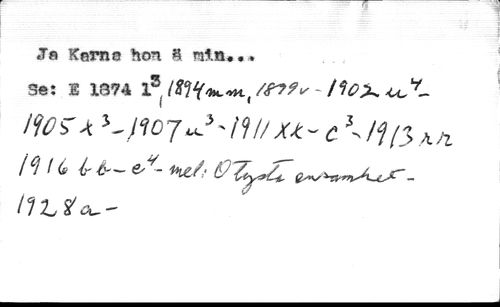 Ja Karna hon ä min...
Se: E 1874 1³, 1894 mm, 1899v - 1902 u⁴-
1905 x³ - 1907 u³ - 1911 xx - c³ - 1913 rr
1916 bb - c⁴ - mel: O tysta ensamhet -
1928a -